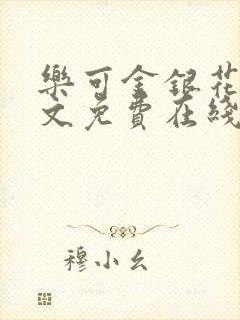 樂可金銀花
文免費在綫
穆小幺